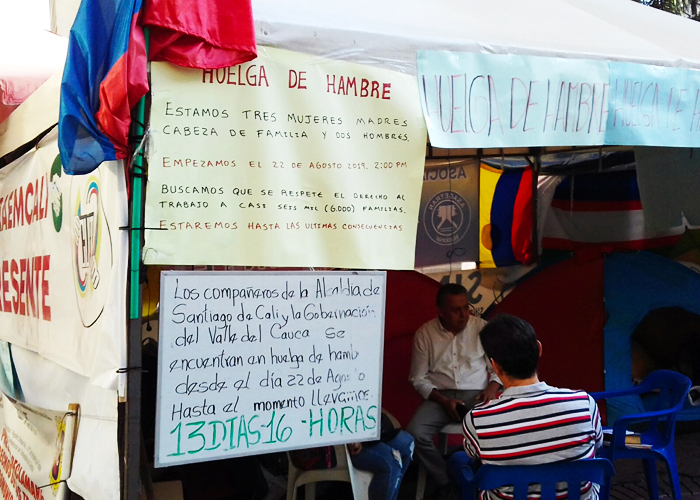 HUELGA DE HAMBRE
ESTAMOS TRES MUJERES MADRES
CABEZA DE FAMILIA Y DOS HOMBRES.
EMPEZAMOS EL 22 DE AGOSTO 2019, 2:00 PM
BUSCAMOS QUE SE RESPETE EL DERECHO AL
TRABAJO A CASI SEIS MIL (6.000) FAMILIAS.
ESTAREMOS HASTA LAS ULTIMAS CONSECUENCIAS
HUELGA DE HAMBRE HUELGA DE
Los compañeros de la Alcaldia de
Santiago de Cali y la Gobernación
del Valle del Cauca se
encuentran en huelga de hamb
desde el día 22 de Agosto
Hasta el momento llevamos
13 DIAS-16-HORAS
RAEMCALI
RESENTE